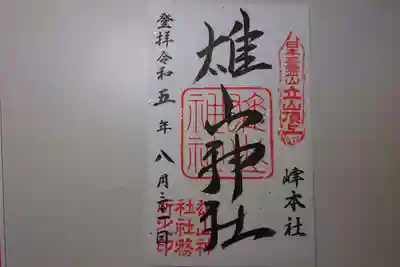 立山頂上
峰本社
雄山神社
雄山神社
登拝令和五年八月三十一日
雄山神社社務所之印